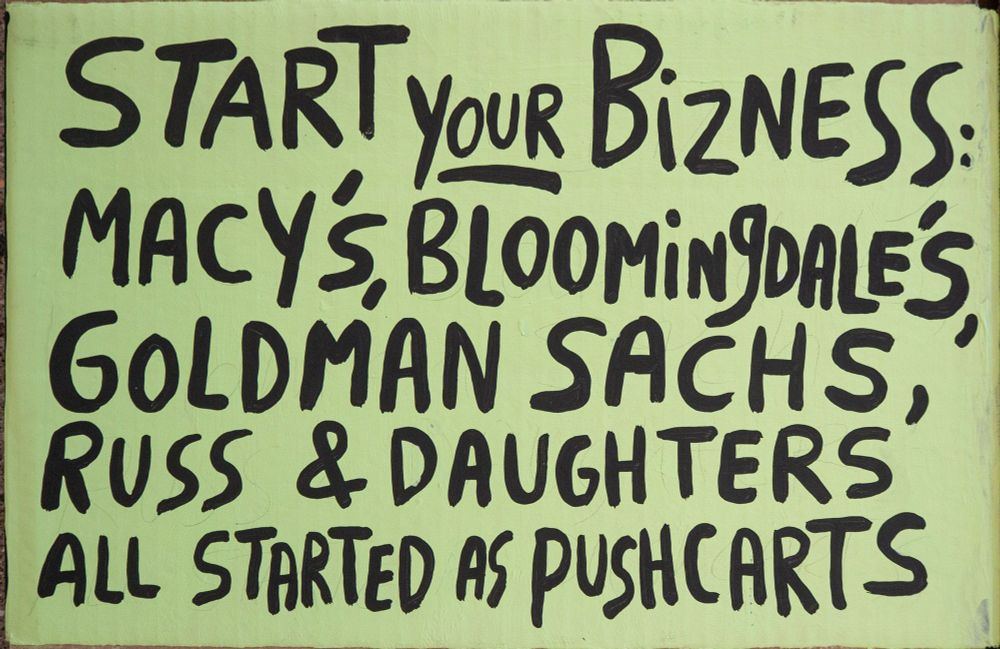 START YOUR BiZNESS:
MACY'S, BLOOMiNgDALE'S,
GOLDMAN SACHS,
RUSS & DAUGHTERS
ALL STARTED AS PUSHCARTS